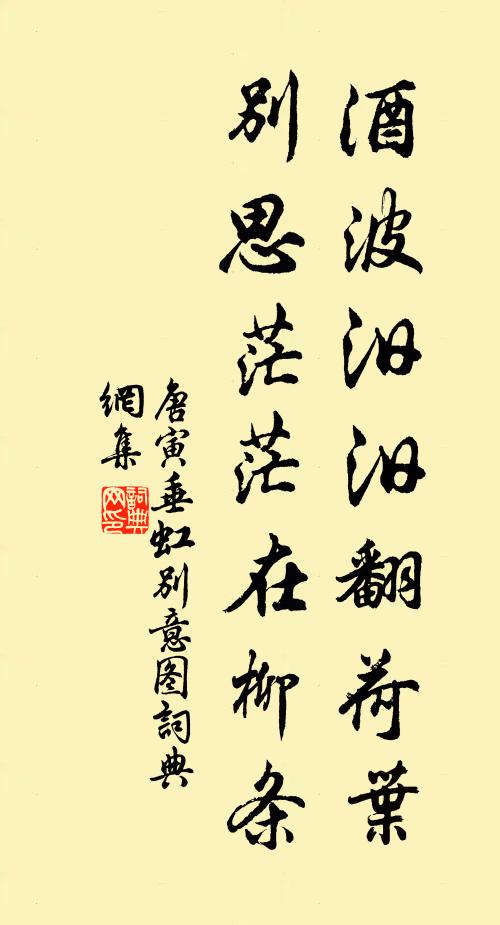 酒波汩汩翻荷葉
别思茫茫在柳条
唐寅垂虹别意图詞典
網集
詞典网印